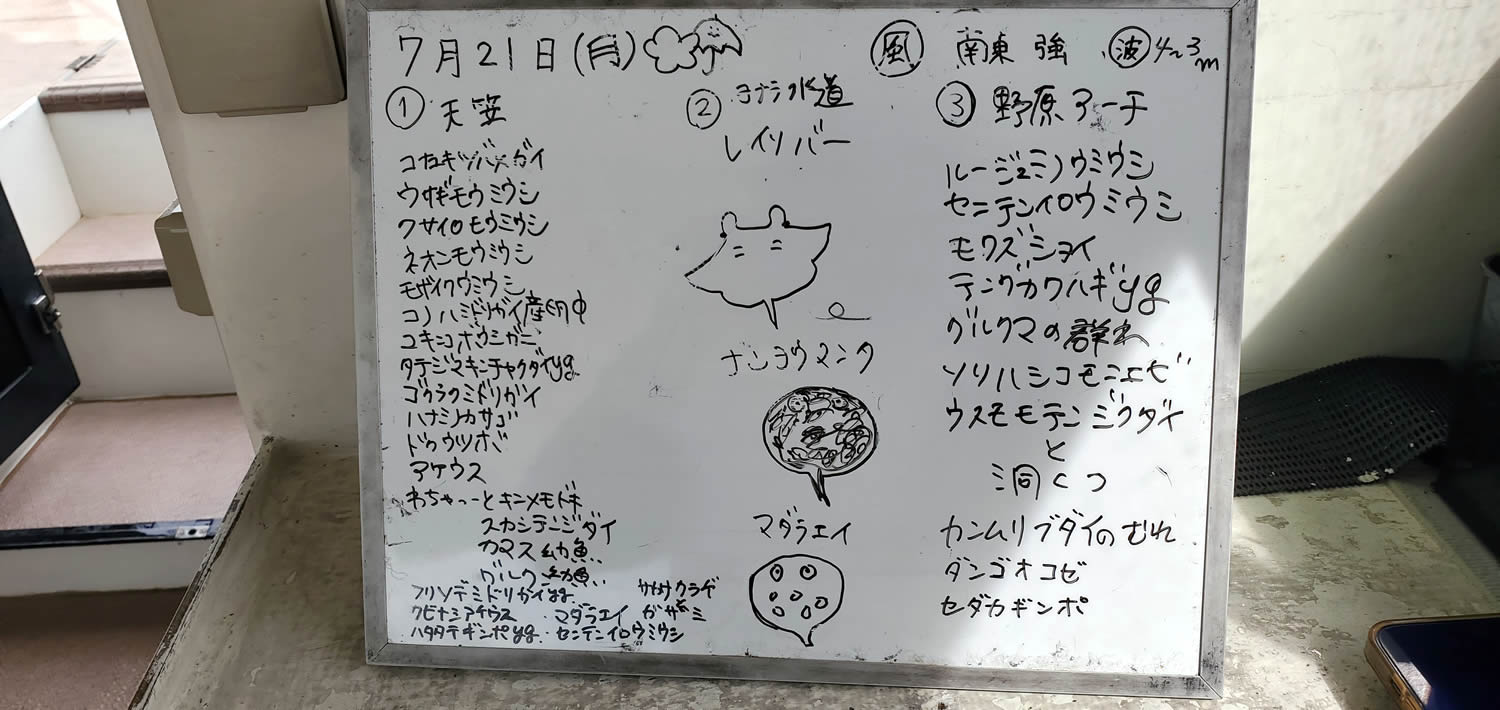 7月21日(月)
風 南東 強 波 4~3m
① 天竺
コナユキツバメガイ
ウサギモウミウシ
クサイロモウミウシ
ネオンモウミウシ
モザイクウミウシ
コノハミドリガイ産卵中
ユキンコボウシガニ
タテジマキンチャクダイyg
ゴクラクミドリガイ
ハナミノカサゴ
ドクウツボ
アケウス
わちゃっーとキンメモドキ
スカシテンジクダイ
カマス幼魚
グルクン幼魚
フリソデミドリガイyg
クビナシアケウス
ハタタテギンポyg
マダラエイ ガザミ
センテンイロウミウシ
② ヨナラ水道
レイリバー
ナンヨウマンタ
マダラエイ
③ 野原アーチ
ルージュミノウミウシ
センテンイロウミウシ
モクズショイ
テングカワハギyg
グルクマの群れ
ソリハシコモンエビ
ウスモモテンジクダイ
と
洞くつ
カンムリブダイのむれ
ダンゴオコゼ
セダカギンポ